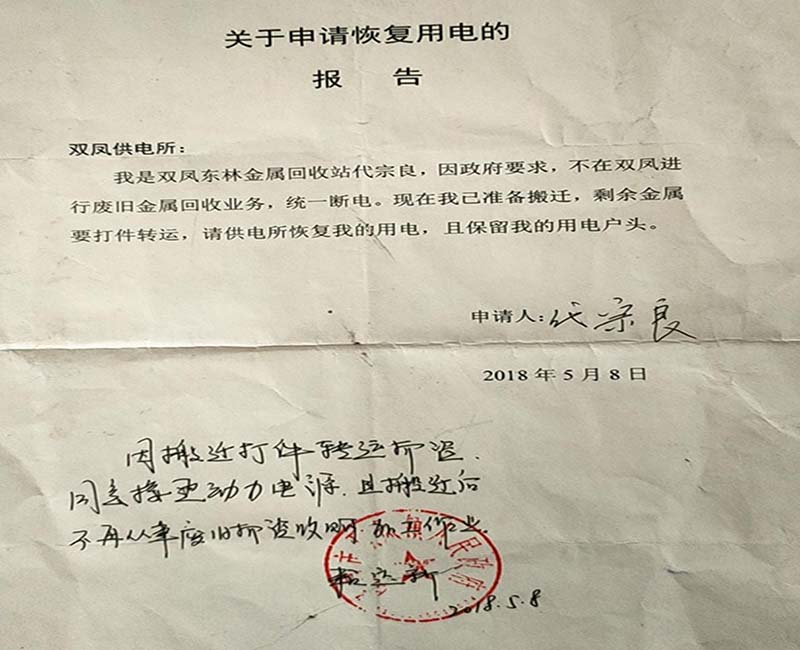 关于申请恢复用电的
报 告
双凤供电所：
我是双凤东林金属回收站代宗良，因政府要求，不在双凤进
行废旧金属回收业务，统一断电。现在我已准备搬迁，剩余金属
要打件转运，请供电所恢复我的用电，且保留我的用电户头。
申请人：代宗良
2018 年 5 月 8 日
因搬迁打件转运物资，
同意接更动力电源，且搬迁后
不再从事废旧物资收购
民政府
2018.5.8